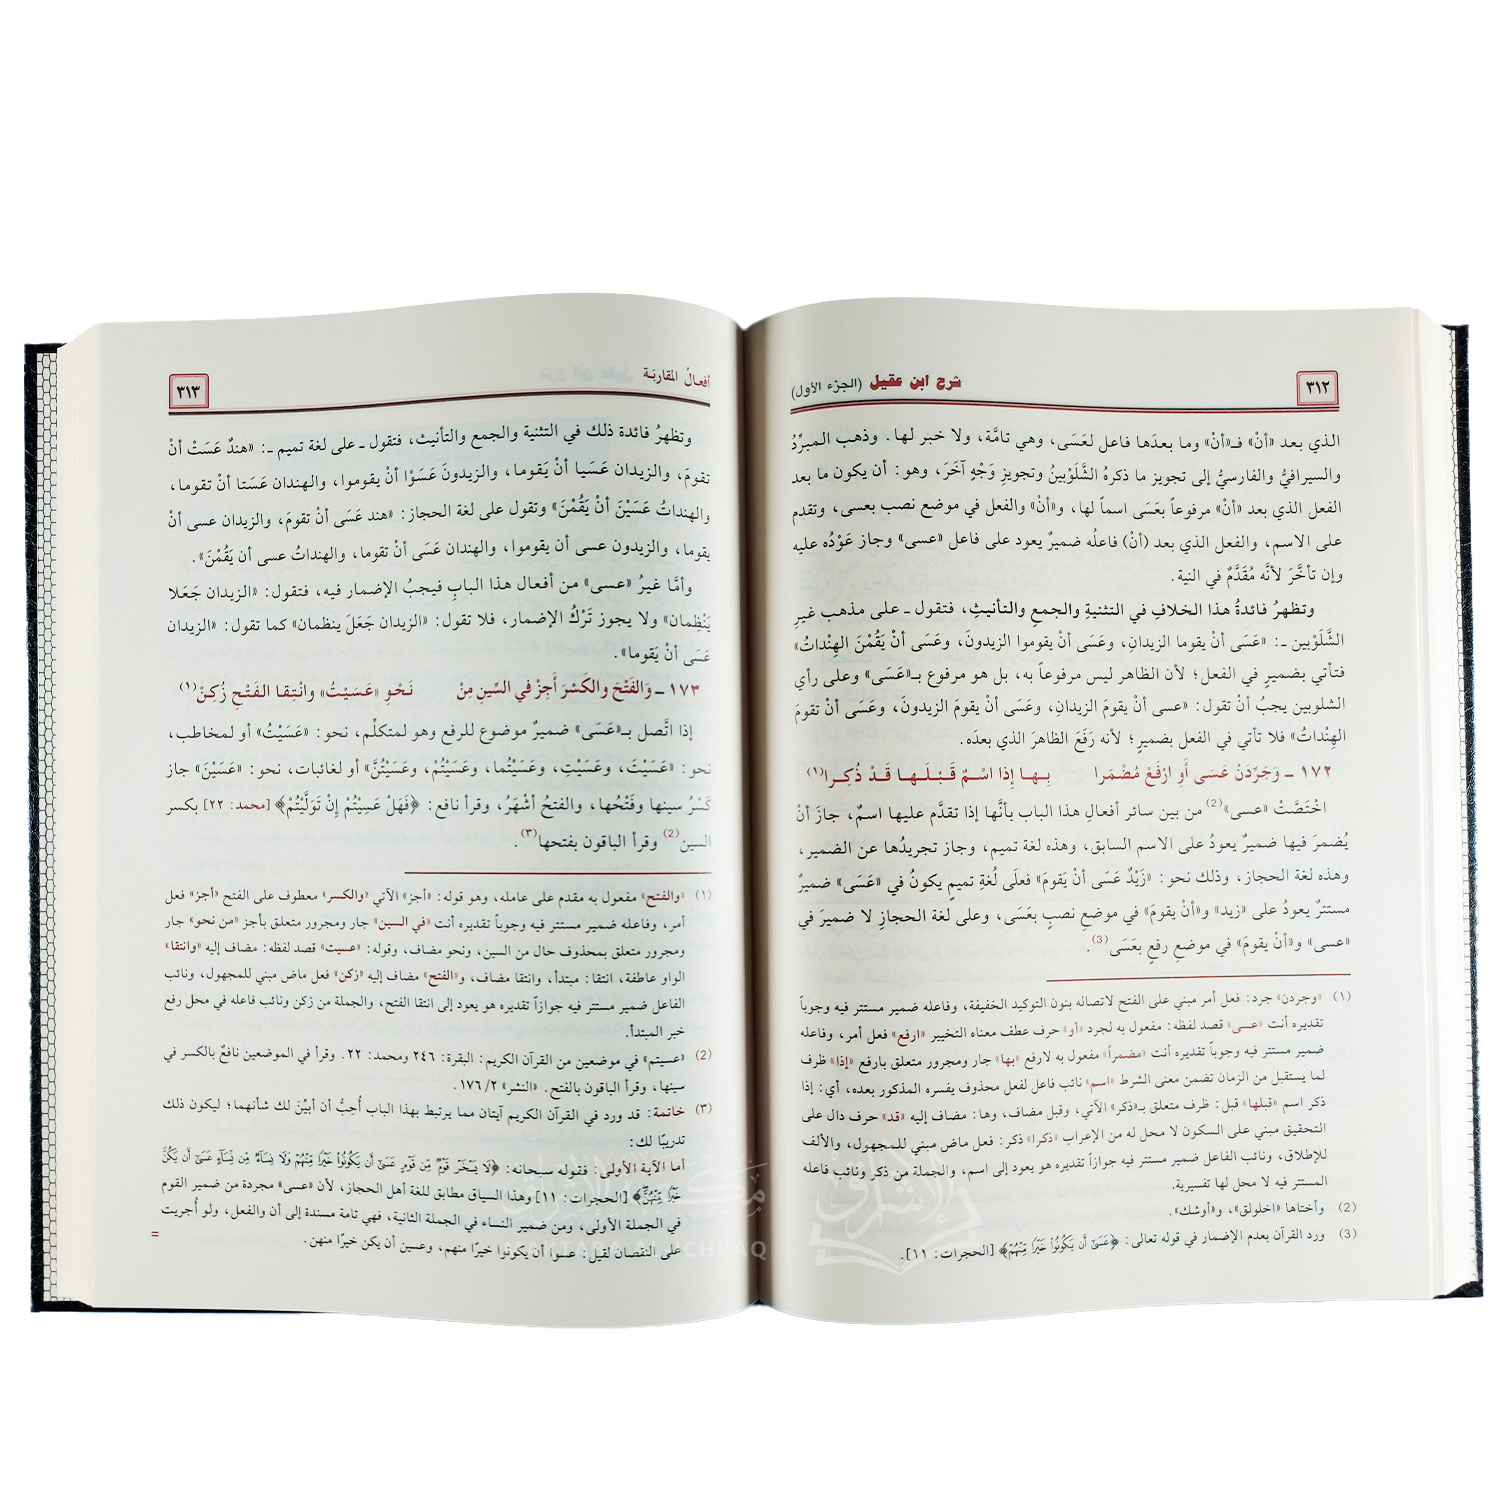 ٣١٢
شرح ابن عقيل (الجزء الأول)
الذي بعد «أنْ» فـ«أنْ» وما بعدَها فاعل لعَسَى، وهي تامَّة، ولا خبر لها. وذهب المبرِّدُ
والسيرافيُّ والفارسيُّ إلى تجويز ما ذكرهُ الشَّلَوْبينُ وتجويزِ وَجْهٍ آخَرَ، وهو: أن يكون ما بعد
الفعل الذي بعد «أنْ» مرفوعاً بعَسَى اسماً لها، و«أنْ» والفعل في موضع نصب بعسى، وتقدم
على الاسم، والفعل الذي بعد (أنْ) فاعلُه ضميرٌ يعود على فاعل «عسى» وجاز عَوْدُه عليه
وإن تأخَّرَ لأنَّه مُقَدَّمٌ في النية.
وتظهرُ فائدةُ هذا الخلافِ في التثنيةِ والجمعِ والتأنيثِ، فتقول ـ على مذهب غيرِ
الشَّلَوْبين ـ: «عَسَى أنْ يقوما الزيدانِ، وعَسَى أنْ يقوموا الزيدونَ، وعَسَى أنْ يَقُمْنَ الهِنْداتُ»
فتأتي بضميرٍ في الفعل؛ لأن الظاهر ليس مرفوعاً به، بل هو مرفوع بـ«عَسَى» وعلى رأي
الشلوبين يجبُ أنْ تقول: «عسى أنْ يقومَ الزيدانِ، وعَسَى أنْ يقومَ الزيدونَ، وعَسَى أنْ تقومَ
الهِنْداتُ» فلا تأتي في الفعل بضميرٍ؛ لأنه رَفَعَ الظاهرَ الذي بعدَه.
١٧٢ ـ وَجَرِّدَنْ عَسَى أَوِ ارْفَعْ مُضْمَرا بِهـا إِذا اسْمٌ قَبْلَـهـا قَدْ ذُكِـرا(١)
اخْتَصَّتْ «عسى»(2) من بين سائر أفعالِ هذا الباب بأنَّها إذا تقدَّم عليها اسمٌ، جازَ أنْ
يُضمرَ فيها ضميرٌ يعودُ على الاسم السابق، وهذه لغة تميم، وجاز تجريدُها عن الضمير،
وهذه لغة الحجاز، وذلك نحو: «زَيْدٌ عَسَى أنْ يَقومَ» فعلَى لُغةِ تميمٍ يكونُ في «عَسَى» ضميرٌ
مستترٌ يعودُ على «زيد» و«أنْ يقومَ» في موضعِ نصبٍ بعَسَى، وعلى لغة الحجازِ لا ضميرَ في
«عسى» و«أنْ يقومَ» في موضعِ رفعٍ بعَسَى (3).
(١) «وجردن» جرد: فعل أمر مبني على الفتح لاتصاله بنون التوكيد الخفيفة، وفاعله ضمير مستتر فيه وجوباً
تقديره أنت «عسى» قصد لفظه: مفعول به لجرد «أو» حرف عطف معناه التخيير «ارفع» فعل أمر، وفاعله
ضمير مستتر فيه وجوباً تقديره أنت «مضمراً» مفعول به لارفع «بها» جار ومجرور متعلق بارفع «إذا» ظرف
لما يستقبل من الزمان تضمن معنى الشرط «اسم» نائب فاعل لفعل محذوف يفسره المذكور بعده، أي: إذا
ذكر اسم «قبلها» قبل: ظرف متعلق بـ«ذكر» الآتي، وقبل مضاف، وها: مضاف إليه «قد» حرف دال على
التحقيق مبني على السكون لا محل له من الإعراب «ذكرا» ذكر: فعل ماض مبني للمجهول، والألف
للإطلاق، ونائب الفاعل ضمير مستتر فيه جوازاً تقديره هو يعود إلى اسم، والجملة من ذكر ونائب فاعله
المستتر فيه لا محل لها تفسيرية.
(2) وأختاها «اخلولق»، و«أوشك».
(3) ورد القرآن بعدم الإضمار في قوله تعالى: ﴿عَسَىٰ أَن يَكُونُوا۟ خَيْرًا مِّنْهُمْ﴾ [الحجرات: ١١].
أفعالُ المقاربَة
٣١٣
وتظهرُ فائدة ذلك في التثنية والجمع والتأنيث، فتقول ـ على لغة تميم ـ: «هندٌ عَسَتْ أنْ
تقومَ، والزيدان عَسَيا أنْ يَقوما، والزيدونَ عَسَوْا أنْ يقوموا، والهندان عَسَتا أنْ تقوما،
والهنداتُ عَسَيْنَ أنْ يَقُمْنَ» وتقول على لغة الحجاز: «هند عَسَى أنْ تقومَ، والزيدان عسى أنْ
يقوما، والزيدون عسى أن يقوموا، والهندان عَسَى أنْ تقوما، والهنداتُ عسى أن يَقُمْنَ».
وأمَّا غيرُ «عسى» من أفعال هذا البابِ فيجبُ الإضمار فيه، فتقول: «الزيدان جَعَلا
يَنْظِمان» ولا يجوز تَرْكُ الإضمار، فلا تقول: «الزيدان جَعَلَ ينظمان» كما تقول: «الزيدان
عَسَى أنْ يَقوما».
١٧٣ ـ وَالفَتْحَ والكَسْرَ أَجِزْ في السِّينِ مِنْ نَحْوِ «عَسَيْتُ» وانْتِقا الفَتْحِ زُكِنْ(١)
إذا اتَّصل بـ«عَسَى» ضميرٌ موضوع للرفع وهو لمتكلِّم، نحو: «عَسَيْتُ» أو لمخاطب،
نحو: «عَسَيْتَ، وعَسَيْتِ، وعَسَيْتُما، وعَسَيْتُمْ، وعَسَيْتُنَّ» أو لغائبات، نحو: «عَسَيْنَ» جاز
كَسْرُ سينها وفَتْحُها، والفتحُ أشْهَرُ، وقرأ نافع: ﴿فَهَلْ عَسِيْتُمْ إِن تَوَلَّيْتُمْ﴾ [محمد: ٢٢] بكسر
السين(2) وقرأ الباقون بفتحها(٣).
(١) «والفتح» مفعول به مقدم على عامله، وهو قوله: «أجز» الآتي «والكسر» معطوف على الفتح «أجز» فعل
أمر، وفاعله ضمير مستتر فيه وجوباً تقديره أنت «في السين» جار ومجرور متعلق بأجز «من نحو» جار
ومجرور متعلق بمحذوف حال من السين، ونحو مضاف، وقوله: «عسيت» قصد لفظه: مضاف إليه «وانتقا»
الواو عاطفة، انتقا: مبتدأ، وانتقا مضاف، و«الفتح» مضاف إليه «زكن» فعل ماض مبني للمجهول، ونائب
الفاعل ضمير مستتر فيه جوازاً تقديره هو يعود إلى انتقا الفتح، والجملة من زكن ونائب فاعله في محل رفع
خبر المبتدأ.
(2) «عسيتم» في موضعين من القرآن الكريم: البقرة: ٢٤٦ ومحمد: ٢٢. وقرأ في الموضعين نافعٌ بالكسر في
سينها، وقرأ الباقون بالفتح. «النشر» ١٧٦/٢.
(٣) خاتمة: قد ورد في القرآن الكريم آيتان مما يرتبط بهذا الباب أُحِبُّ أن أبيِّنَ لك شأنهما؛ ليكون ذلك
تدريبًا لك:
أما الآية الأولى: فقوله سبحانه: ﴿لَا يَسْخَرْ قَوْمٌ مِّن قَوْمٍ عَسَىٰٓ أَن يَكُونُوا۟ خَيْرًا مِّنْهُمْ وَلَا نِسَآءٌ مِّن نِّسَآءٍ عَسَىٰٓ أَن يَكُنَّ
خَيْرًا مِّنْهُنَّ﴾ [الحجرات: ١١] وهذا السياق مطابق للغة أهل الحجاز، لأن «عسى» مجردة من ضمير القوم
في الجملة الأولى، ومن ضمير النساء في الجملة الثانية، فهي تامة مسندة إلى أن والفعل، ولو أُجريت
على النقصان لقيل: عسوا أن يكونوا خيرًا منهم، وعسين أن يكن خيرًا منهن.
=